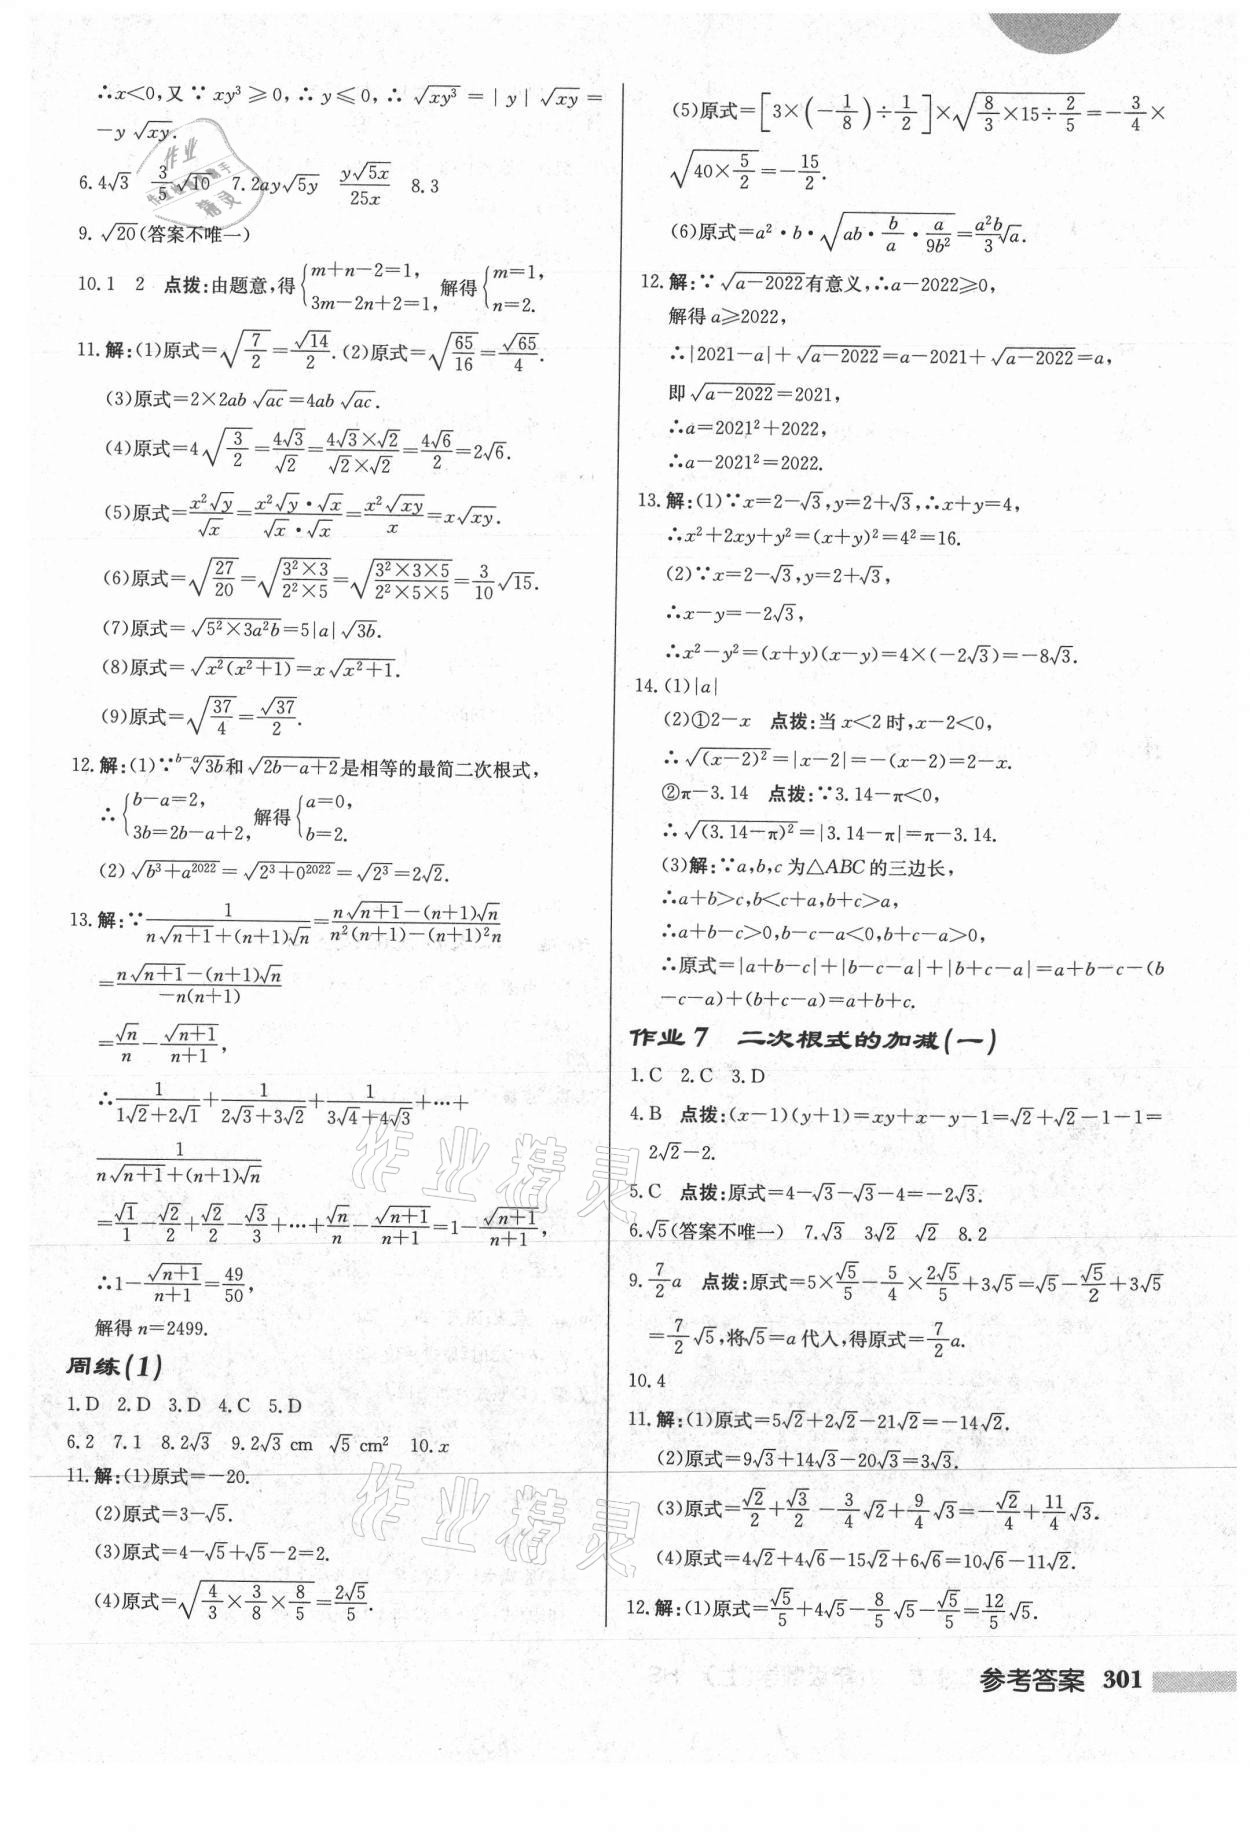 ∴x<0,又∵xy³≥0,∴y≤0,∴√(xy³)=|y|√(xy)=
-y√(xy).
6.4√3 3/5√10 7.2ay√(5y) y√(5x)/25x 8.3
9.√20(答案不唯一)
10.1 2 点拨:由题意,得{m+n-2=1, 3m-2n+2=1, 解得{m=1, n=2.
11.解:(1)原式=√(7/2)=√14/2.(2)原式=√(65/16)=√65/4.
(3)原式=2×2ab√(ac)=4ab√(ac).
(4)原式=4√(3/2)=4√3/√2=(4√3×√2)/(√2×√2)=4√6/2=2√6.
(5)原式=x²√y/√x=(x²√y·√x)/(√x·√x)=x²√(xy)/x=x√(xy).
(6)原式=√(27/20)=√((3²×3)/(2²×5))=√((3²×3×5)/(2²×5×5))=3/10√15.
(7)原式=√(5²×3a²b)=5|a|√(3b).
(8)原式=√(x²(x²+1))=x√(x²+1).
(9)原式=√(37/4)=√37/2.
12.解:(1)∵ᵇ⁻ᵃ√(3b)和√(2b-a+2)是相等的最简二次根式,
∴{b-a=2, 3b=2b-a+2, 解得{a=0, b=2.
(2)√(b³+a²⁰²²)=√(2³+0²⁰²²)=√(2³)=2√2.
13.解:∵1/(n√(n+1)+(n+1)√n)=(n√(n+1)-(n+1)√n)/(n²(n+1)-(n+1)²n)
=(n√(n+1)-(n+1)√n)/(-n(n+1))
=√n/n-√(n+1)/(n+1),
∴1/(1√2+2√1)+1/(2√3+3√2)+1/(3√4+4√3)+…+
1/(n√(n+1)+(n+1)√n)
=√1/1-√2/2+√2/2-√3/3+…+√n/n-√(n+1)/(n+1)=1-√(n+1)/(n+1),
∴1-√(n+1)/(n+1)=49/50,
解得n=2499.
周练(1)
1.D 2.D 3.D 4.C 5.D
6.2 7.1 8.2√3 9.2√3 cm √5 cm² 10.x
11.解:(1)原式=-20.
(2)原式=3-√5.
(3)原式=4-√5+√5-2=2.
(4)原式=√(4/3×3/8×8/5)=2√5/5.
(5)原式=[3×(-1/8)÷1/2]×√(8/3×15÷2/5)=-3/4×
√(40×5/2)=-15/2.
(6)原式=a²·b·√(ab·b/a·a/9b²)=a²b/3√a.
12.解:∵√(a-2022)有意义,∴a-2022≥0,
解得a≥2022,
∴|2021-a|+√(a-2022)=a-2021+√(a-2022)=a,
即√(a-2022)=2021,
∴a=2021²+2022,
∴a-2021²=2022.
13.解:(1)∵x=2-√3,y=2+√3,∴x+y=4,
∴x²+2xy+y²=(x+y)²=4²=16.
(2)∵x=2-√3,y=2+√3,
∴x-y=-2√3,
∴x²-y²=(x+y)(x-y)=4×(-2√3)=-8√3.
14.(1)|a|
(2)①2-x 点拨:当x<2时,x-2<0,
∴√((x-2)²)=|x-2|=-(x-2)=2-x.
②π-3.14 点拨:∵3.14-π<0,
∴√((3.14-π)²)=|3.14-π|=π-3.14.
(3)解:∵a,b,c为△ABC的三边长,
∴a+b>c,b<c+a,b+c>a,
∴a+b-c>0,b-c-a<0,b+c-a>0,
∴原式=|a+b-c|+|b-c-a|+|b+c-a|=a+b-c-(b
-c-a)+(b+c-a)=a+b+c.
作业7 二次根式的加减(一)
1.C 2.C 3.D
4.B 点拨:(x-1)(y+1)=xy+x-y-1=√2+√2-1-1=
2√2-2.
5.C 点拨:原式=4-√3-√3-4=-2√3.
6.√5(答案不唯一) 7.√3 3√2 √2 8.2
9.7/2a 点拨:原式=5×√5/5-5/4×2√5/5+3√5=√5-√5/2+3√5
=7/2√5,将√5=a代入,得原式=7/2a.
10.4
11.解:(1)原式=5√2+2√2-21√2=-14√2.
(2)原式=9√3+14√3-20√3=3√3.
(3)原式=√2/2+√3/2-3/4√2+9/4√3=-√2/4+11/4√3.
(4)原式=4√2+4√6-15√2+6√6=10√6-11√2.
12.解:(1)原式=√5/5+4√5-8/5√5-√5/5=12/5√5.
参考答案 301
作业精灵
作业精灵